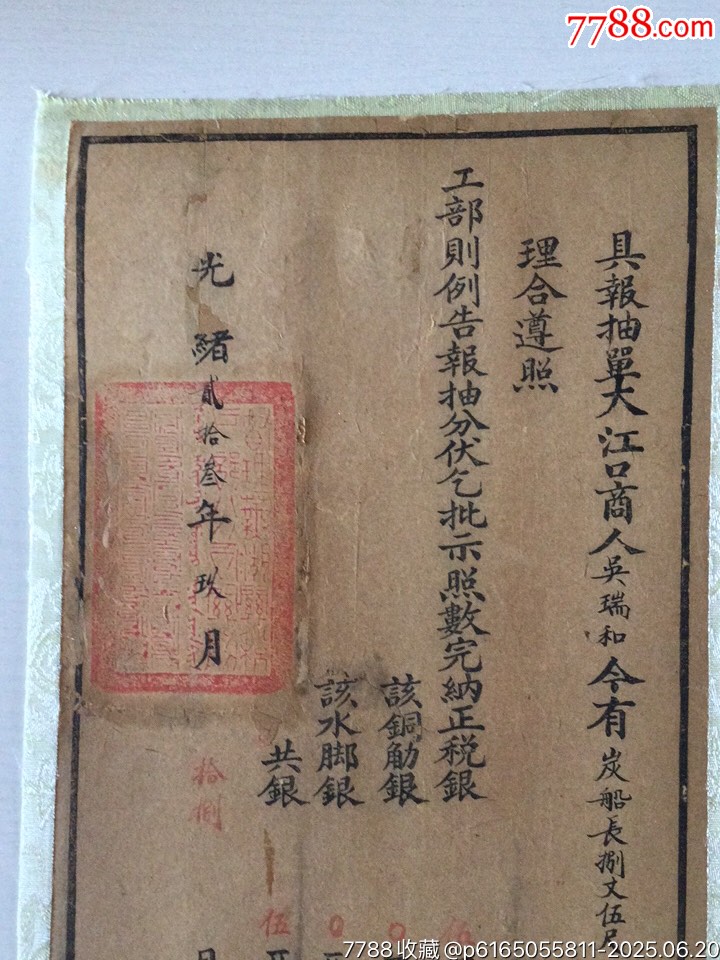 7788.com
具報抽單大江口商人吳瑞和今有炭船長捌丈伍尺
理合遵照
工部則例告報抽分伏乞批示照數完納正税銀
該銅觔銀
該水脚銀
共銀
伍
光緒貳拾叁年玖月
拾捌
日
7788收藏@p6165055811-2025.06.20